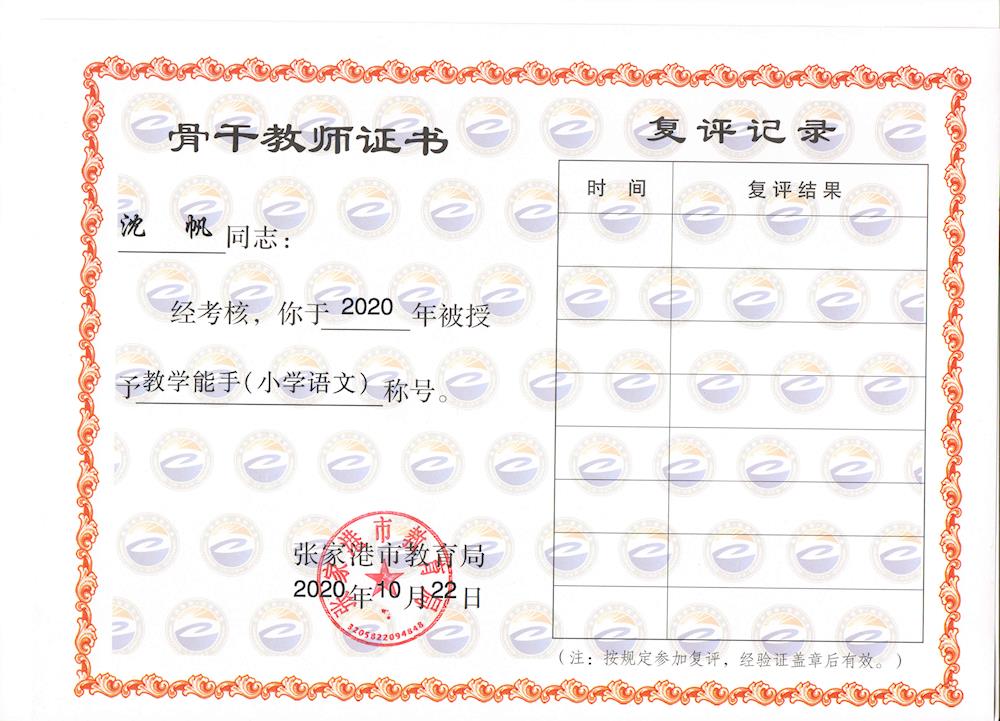 骨干教师证书
沈 帆 同志：
经考核，你于 2020 年被授
予教学能手（小学语文）称号。
张家港市教育局
2020年10月22日
张家港市教育局
3205822094848
复评记录
时 间 复评结果
（注：按规定参加复评，经验证盖章后有效。）